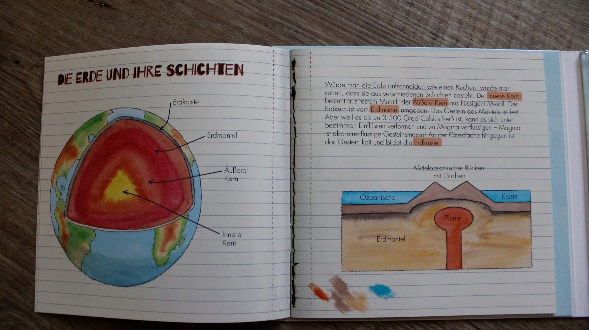 DIE ERDE UND IHRE SCHICHTEN
Erdkruste
Erdmantel
Äußerer
Kern
Innerer
Kern
Würde man die Erde aufschneiden wie einen Kuchen, würde man
sehen, dass sie aus verschiedenen Schichten besteht. Der Innere Kern
besteht aus festem Metall, der Äußere Kern aus flüssigem Metall. Der
Erdkern ist vom Erdmantel umgeben. Das Gestein des Mantels ist fest.
Aber weil es bis zu 3.500 Grad Celsius heiß ist, kann es sich unter
bestimmten Einflüssen verformen und zu Magma verflüssigen – Magma
ist also eine flüssige Gesteinsmasse. An der Oberfläche hingegen ist
das Gestein kalt und bildet die Erdkruste.
Mittelozeanischer Rücken
mit Graben
Ozeanische Kruste
Plume
Erdmantel